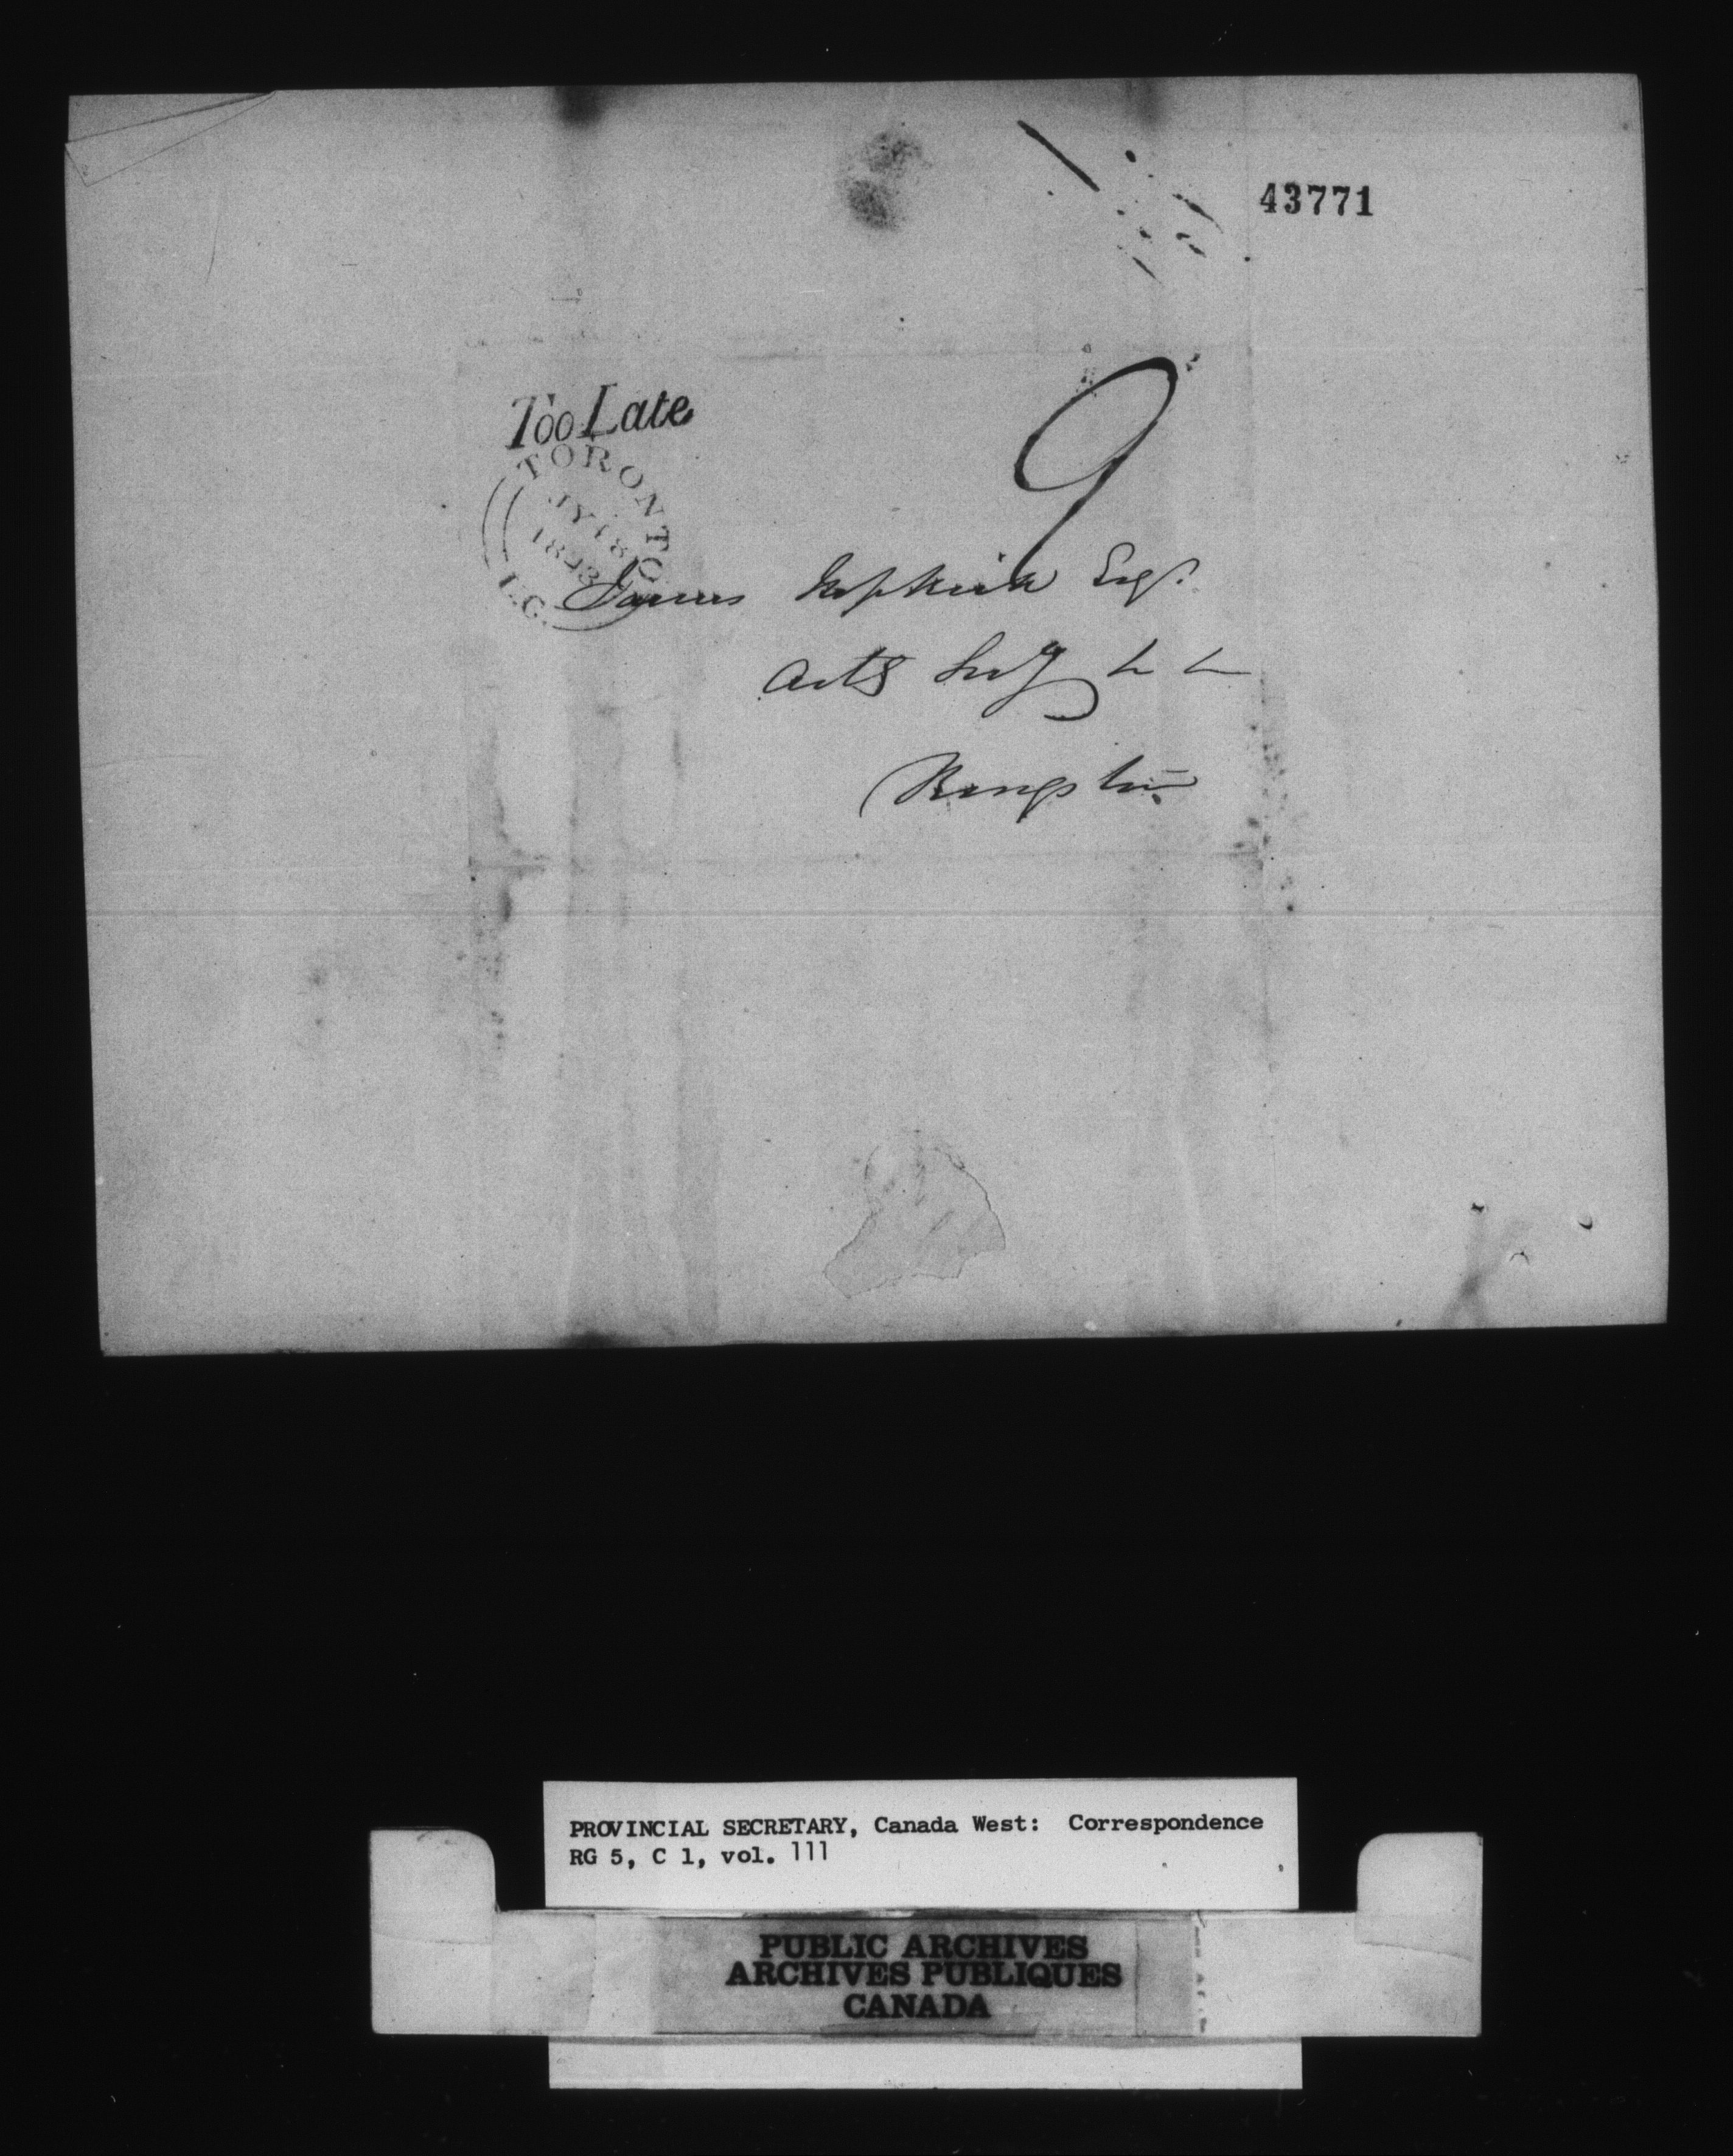 43771
Too Late
TORONTO
JY 18
1843
U.C.
9
James Hopkirk Esqr.
Asst Secy
Kingston
PROVINCIAL SECRETARY, Canada West: Correspondence
RG 5, C 1, vol. 111
PUBLIC ARCHIVES
ARCHIVES PUBLIQUES
CANADA